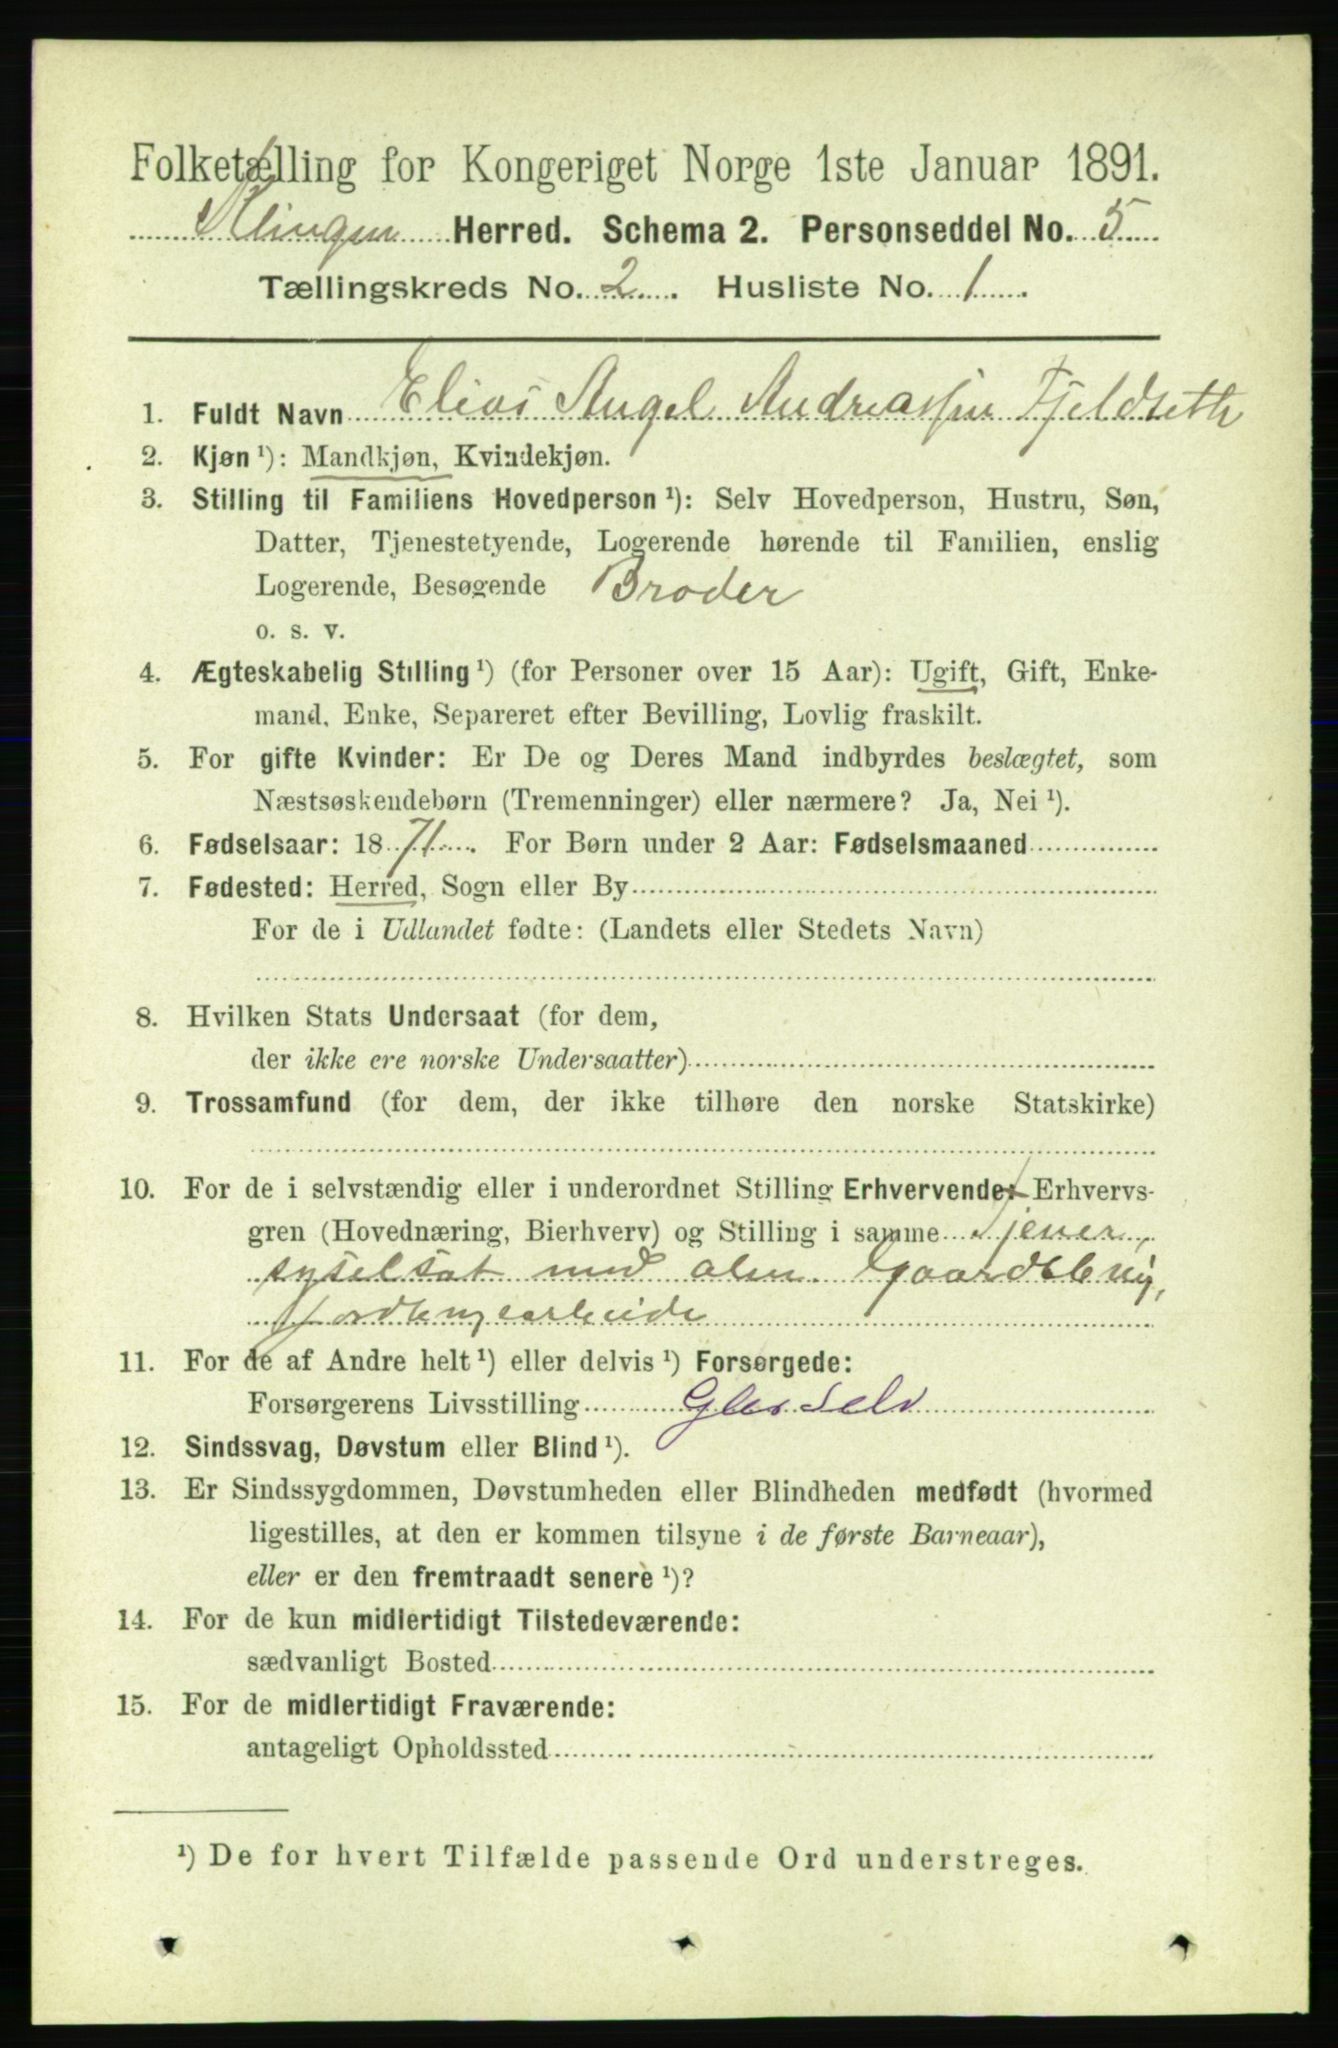 Folketælling for Kongeriget Norge 1ste Januar 1891.
Klingen Herred. Schema 2. Personseddel No. 5
Tællingskreds No. 2. Husliste No. 1.
1. Fuldt Navn Elias Angel Andreassen Fjeldseth
2. Kjøn ¹): Mandkjøn, Kvindekjøn.
3. Stilling til Familiens Hovedperson ¹): Selv Hovedperson, Hustru, Søn,
Datter, Tjenestetyende, Logerende hørende til Familien, enslig
Logerende, Besøgende Broder
o. s. v.
4. Ægteskabelig Stilling ¹) (for Personer over 15 Aar): Ugift, Gift, Enke-
mand, Enke, Separeret efter Bevilling, Lovlig fraskilt.
5. For gifte Kvinder: Er De og Deres Mand indbyrdes beslægtet, som
Næstsøskendebørn (Tremenninger) eller nærmere? Ja, Nei ¹).
6. Fødselsaar: 1871. For Børn under 2 Aar: Fødselsmaaned
7. Fødested: Herred, Sogn eller By
For de i Udlandet fødte: (Landets eller Stedets Navn)
8. Hvilken Stats Undersaat (for dem,
der ikke ere norske Undersaatter)
9. Trossamfund (for dem, der ikke tilhøre den norske Statskirke)
10. For de i selvstændig eller i underordnet Stilling Erhvervende: Erhvervs-
gren (Hovednæring, Bierhverv) og Stilling i samme Tjener,
syselsat med alm. Gaardsbrug,
Jordbrugarbeide
11. For de af Andre helt ¹) eller delvis ¹) Forsørgede:
Forsørgerens Livsstilling Selv
12. Sindssvag, Døvstum eller Blind ¹).
13. Er Sindssygdommen, Døvstumheden eller Blindheden medfødt (hvormed
ligestilles, at den er kommen tilsyne i de første Barneaar),
eller er den fremtraadt senere ¹)?
14. For de kun midlertidigt Tilstedeværende:
sædvanligt Bosted
15. For de midlertidigt Fraværende:
antageligt Opholdssted
¹) De for hvert Tilfælde passende Ord understreges.